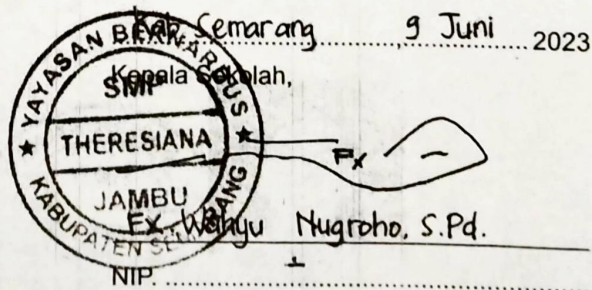 Kab. Semarang 9 Juni 2023
Kepala Sekolah,
YAYASAN BERNARDUS
SMP
THERESIANA
JAMBU
KABUPATEN SEMARANG
Fx
Fx. Wahyu Nugroho, S.Pd.
NIP. -